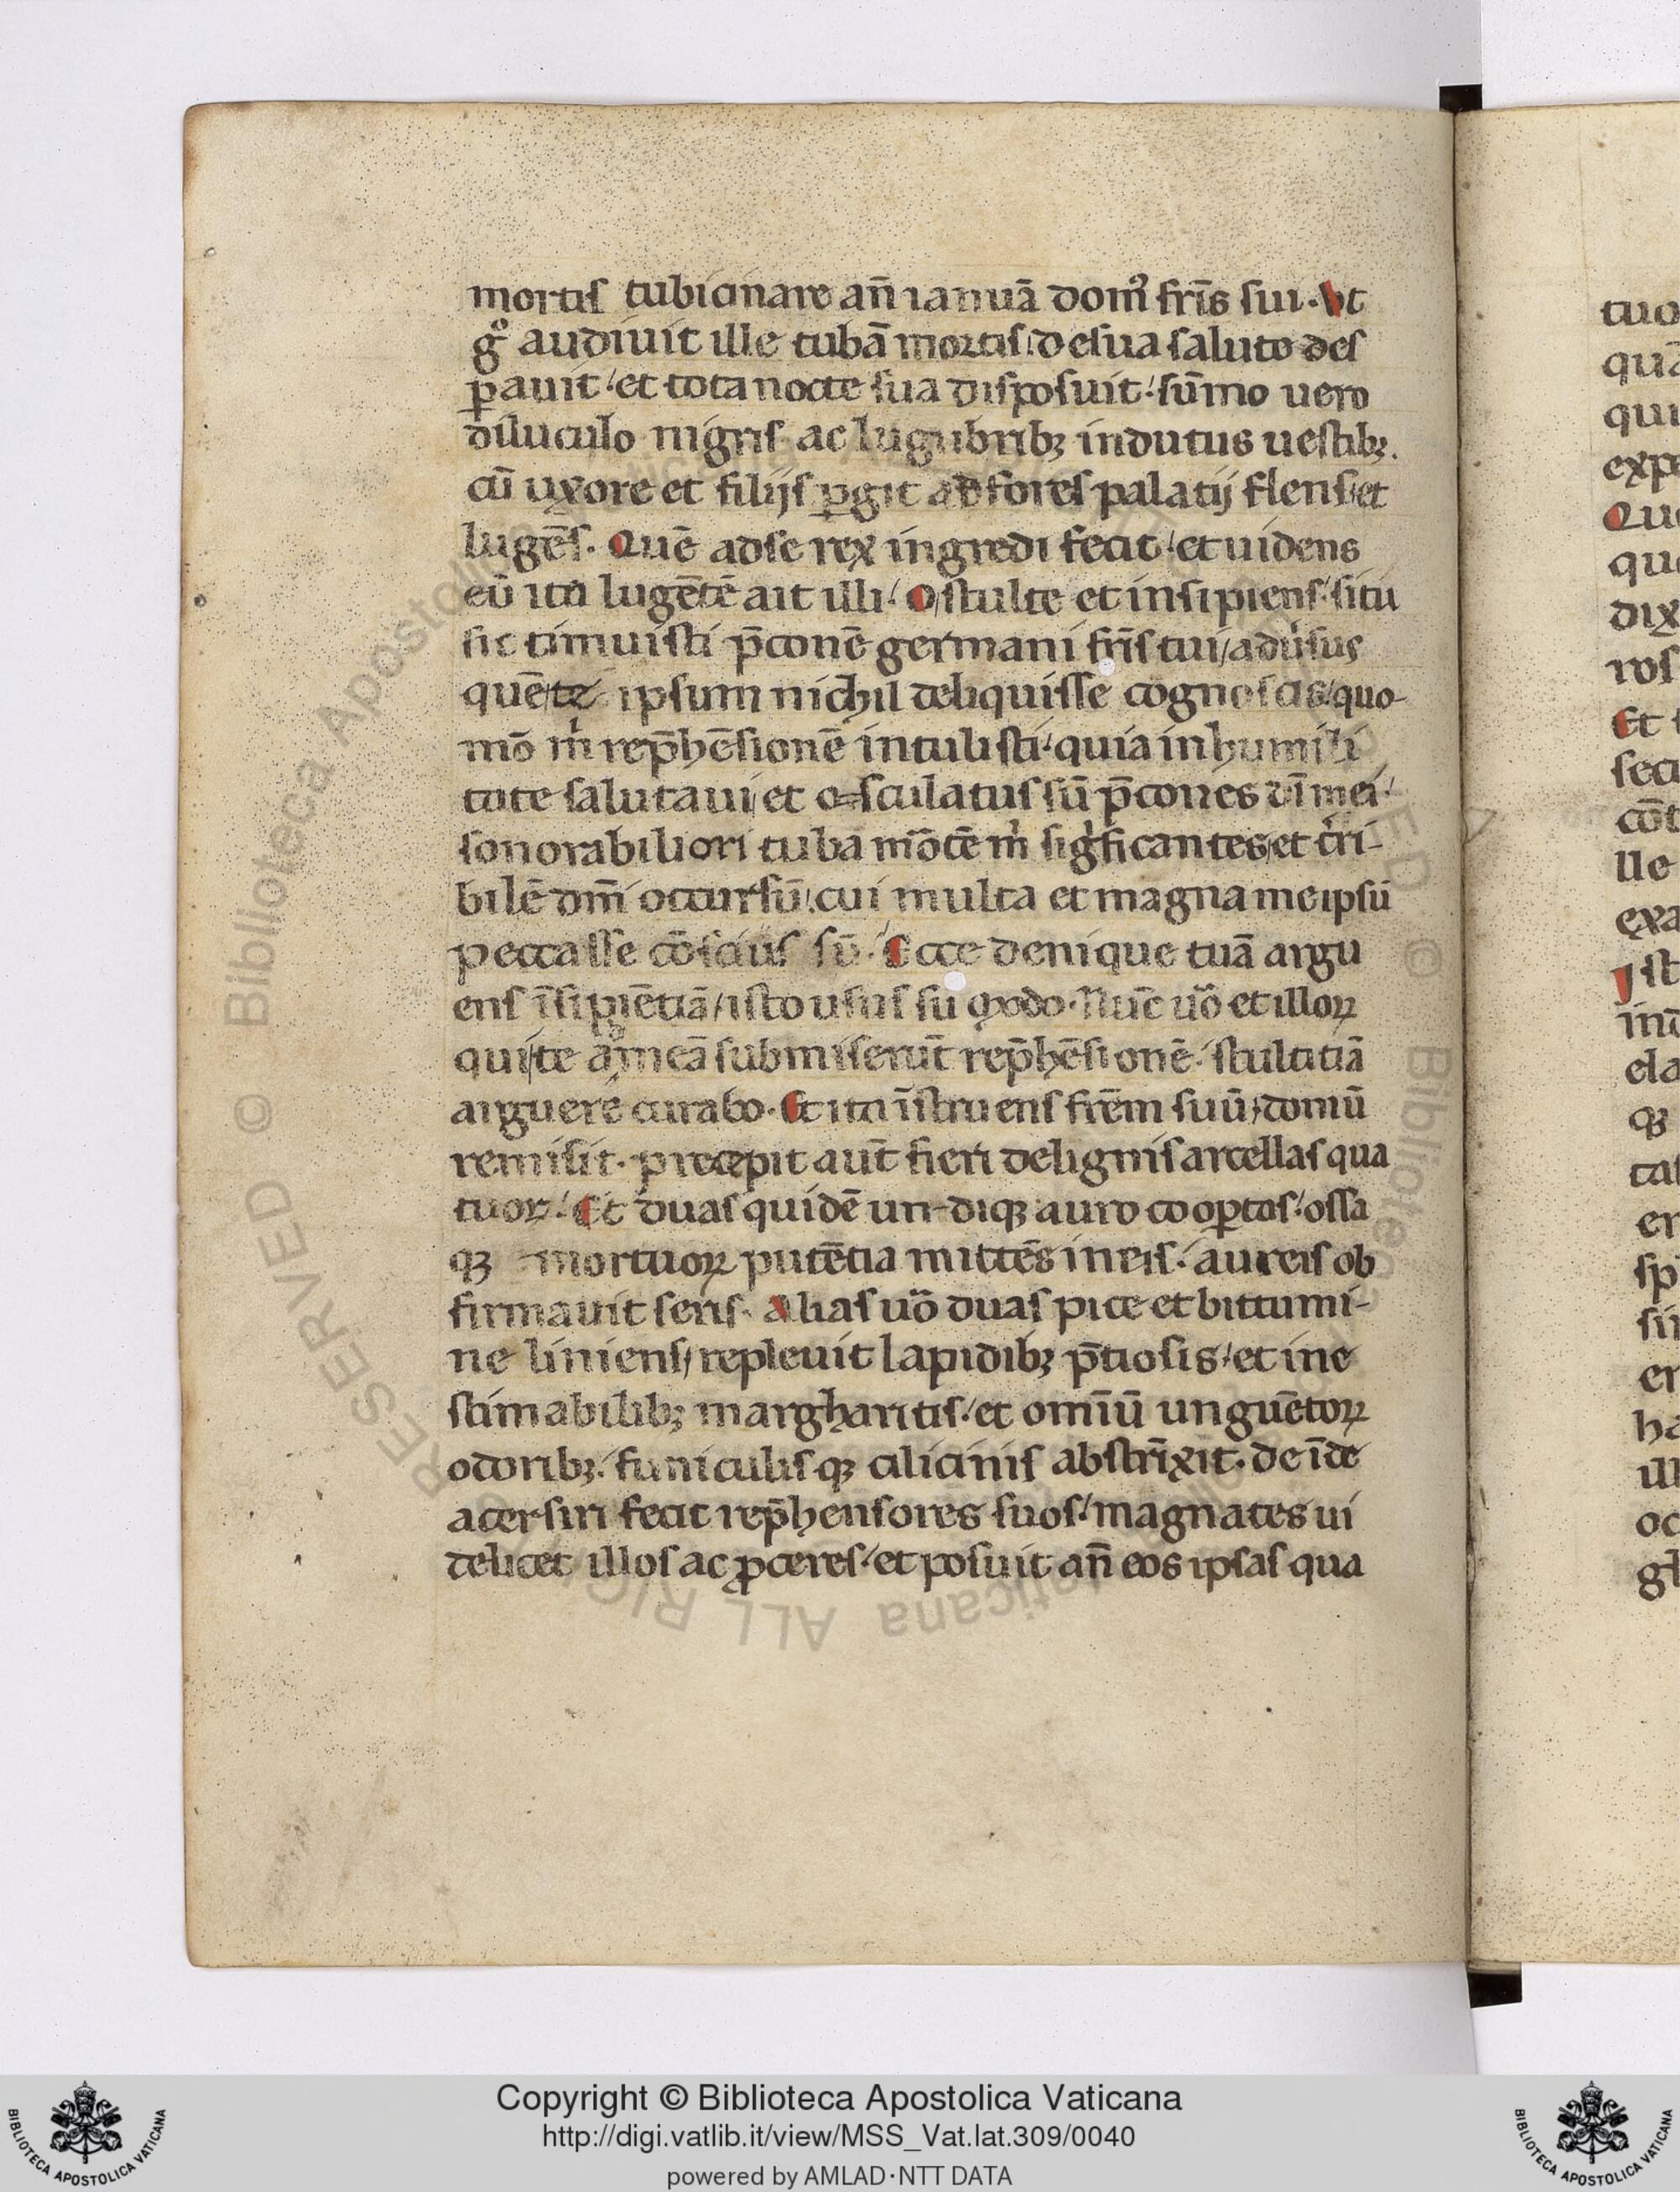 mortis tubicinare an̄ ianuā domꝰ fr̄is sui. Ut
gͦ audiuit ille tubā mortis de sua salute des
ꝑauit et tota nocte sua disposuit sūmo uero
diluculo nigris ac lugubribꝫ indutus uestibꝫ.
cū uxore et filijs ꝑgit ad fores palatij flens et
lugēs. Quē ad se rex ingredi fecit et uidens
eū ita lugētē ait illi O stulte et insipiens si tu
sic timuisti p̄conē germani fr̄is tui adu̓sus
quē te ipsum nichil deliquisse cognoscis quo-
mō m̓ rep̄hēsionē intulisti quia in humili
tate salutaui et osculatus sū p̄cones dī mei
sonorabiliori tuba mōtē m̓ sig̓ficantes et t̓ri-
bilē dn̄i occursū cui multa et magna me ipsū
peccasse cōscius sū. Ecce denique tuā argu
ens īsipiētiā isto usus sū modo. Nūc uō et illoꝝ
qui te ad meā submiserūt rep̄hēsionē stultitiā
arguere curabo. Et ita īstruens frēm suū domū
remisit. precepit aūt fieri de lignis arcellas qua
tuor. Et duas quidē undiqꝫ auro cooꝑtas ossa
qꝫ mortuoꝝ putētia mittēs in eis aureis ob
firmauit seris. Alias uō duas pice et bittumi-
ne liniens repleuit lapidibꝫ p̄tiosis et ine
stimabilibꝫ margharitis et omīū unguētoꝝ
odoribꝫ funiculisqꝫ cilicinis abstrīxit. deīde
acersiri fecit rep̄hensores suos magnates ui
delicet illos ac ꝓceres et posuit an̄ eos ipsas qua
tuo
quā
qui
expe
Que
dix
ros
Et
cōt
lle
exa
ela
qꝫ
er
er
ha
ill
oc
Copyright © Biblioteca Apostolica Vaticana
http://digi.vatlib.it/view/MSS_Vat.lat.309/0040
powered by AMLAD·NTT DATA
BIBLIOTECA APOSTOLICA VATICANA
BIBLIOTECA APOSTOLICA VATICANA